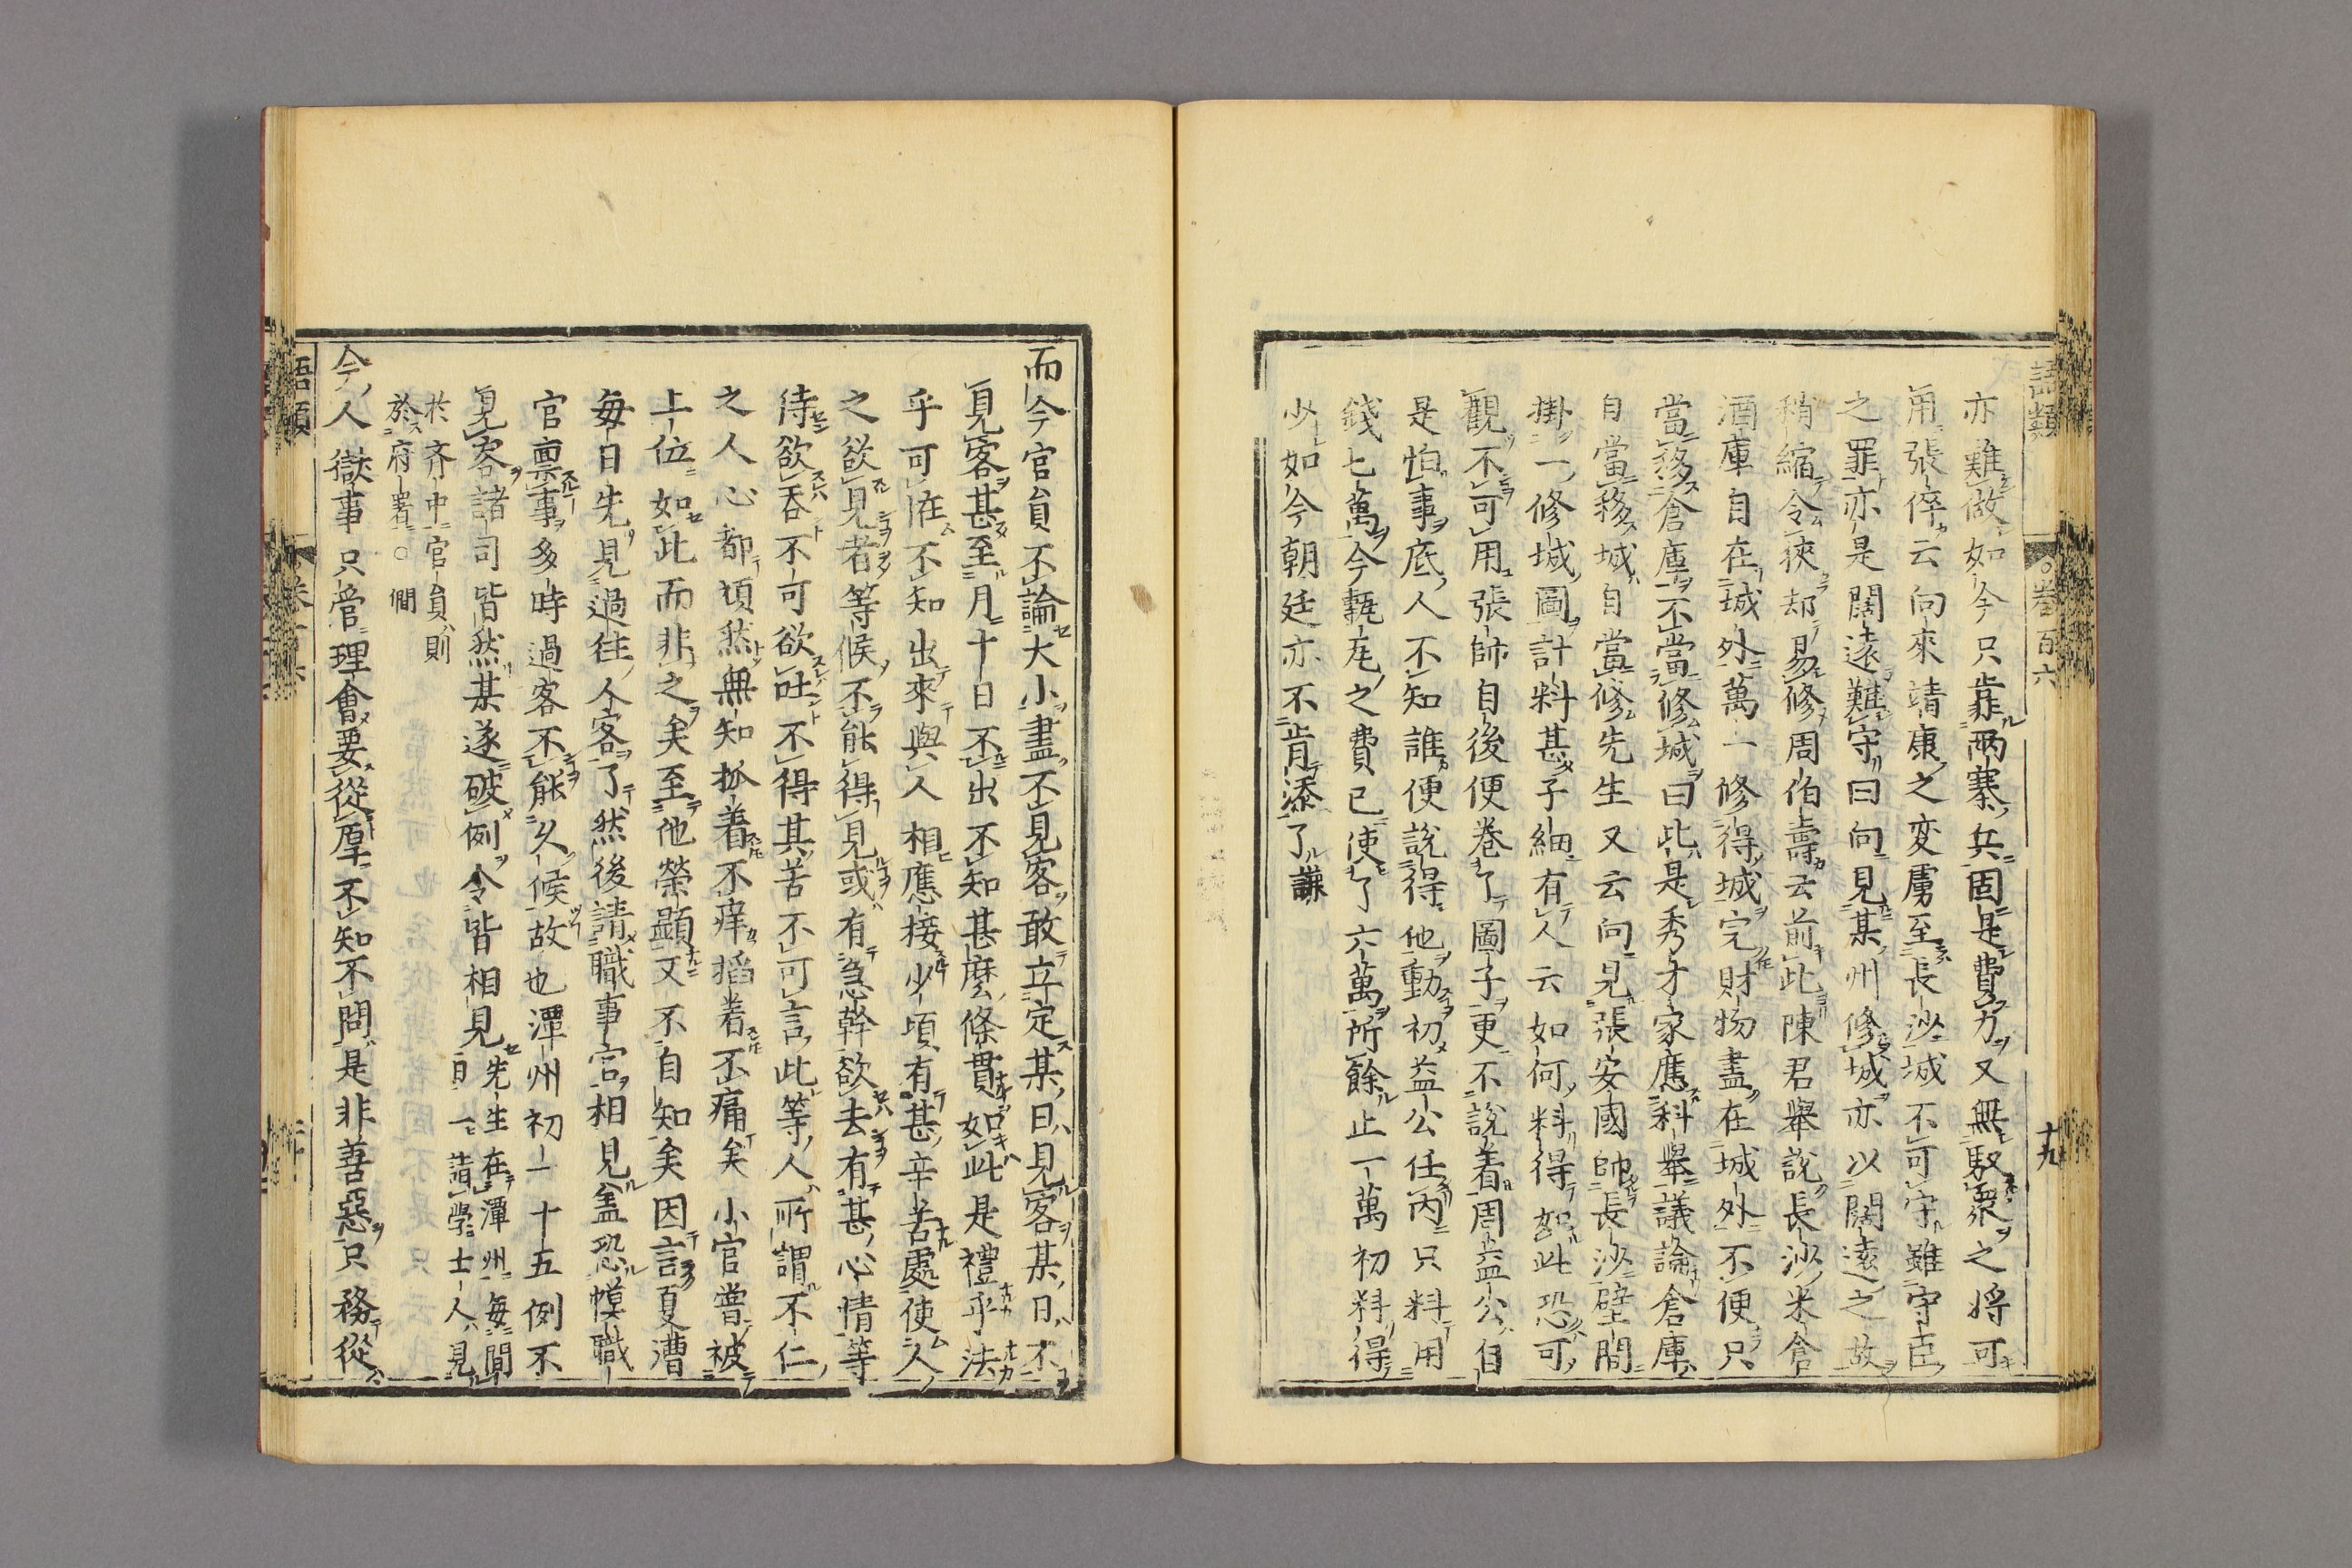 語類
卷百六
十九
亦難做如今只靠兩寨兵固是費力又無馭衆之將可
用張倅云向來靖康之変虜至長沙城不可守雖守臣
之罪亦是闊遠難守曰向見某州修城亦以闊遠之故
稍縮令狹却易修周伯壽云前此陳君舉說長沙米倉
酒庫自在城外萬一修得城完財物盡在城外不便只
當移倉庫不當修城曰此是秀才家應科舉議論倉庫
自當移城自當修先生又云向見張安國帥長沙壁間
掛一修城圖計料甚子細有人云如何料得如此恐可
觀不可用張帥自後便卷了圖子更不說着周益公自
是怕事底人不知誰便說得他動初益公任内只料用
錢七萬今甎瓦之費已使了六萬所餘止一萬初料得
少如今朝廷亦不肯添了謙
而今官員不論大小盡不見客敢立定某日見客某日不
見客甚至月十日不出不知甚麽條貫如此是禮乎法
乎可怪不知出來與人相應接少頃有甚辛苦處使人
之欲見者等候不能得見或有急幹欲去有甚心情等
待欲吞不可欲吐不得其苦不可言此等人所謂不仁
之人心都頑然無知抓着不痒掐着不痛矣小官嘗被
上位如此而非之矣至他榮顯又不自知矣因言夏漕
每日先見過往人客了然後請職事官相見蓋恐幙職
官禀事多時過客不能久候故也潭州初一十五例不
見客諸司皆然某遂破例令皆相見先生在潭州每間
日一請學士人見
於齐中官員則
於府署○僩
今人獄事只管理會要從厚不知不問是非善惡只務從
語類
卷百六